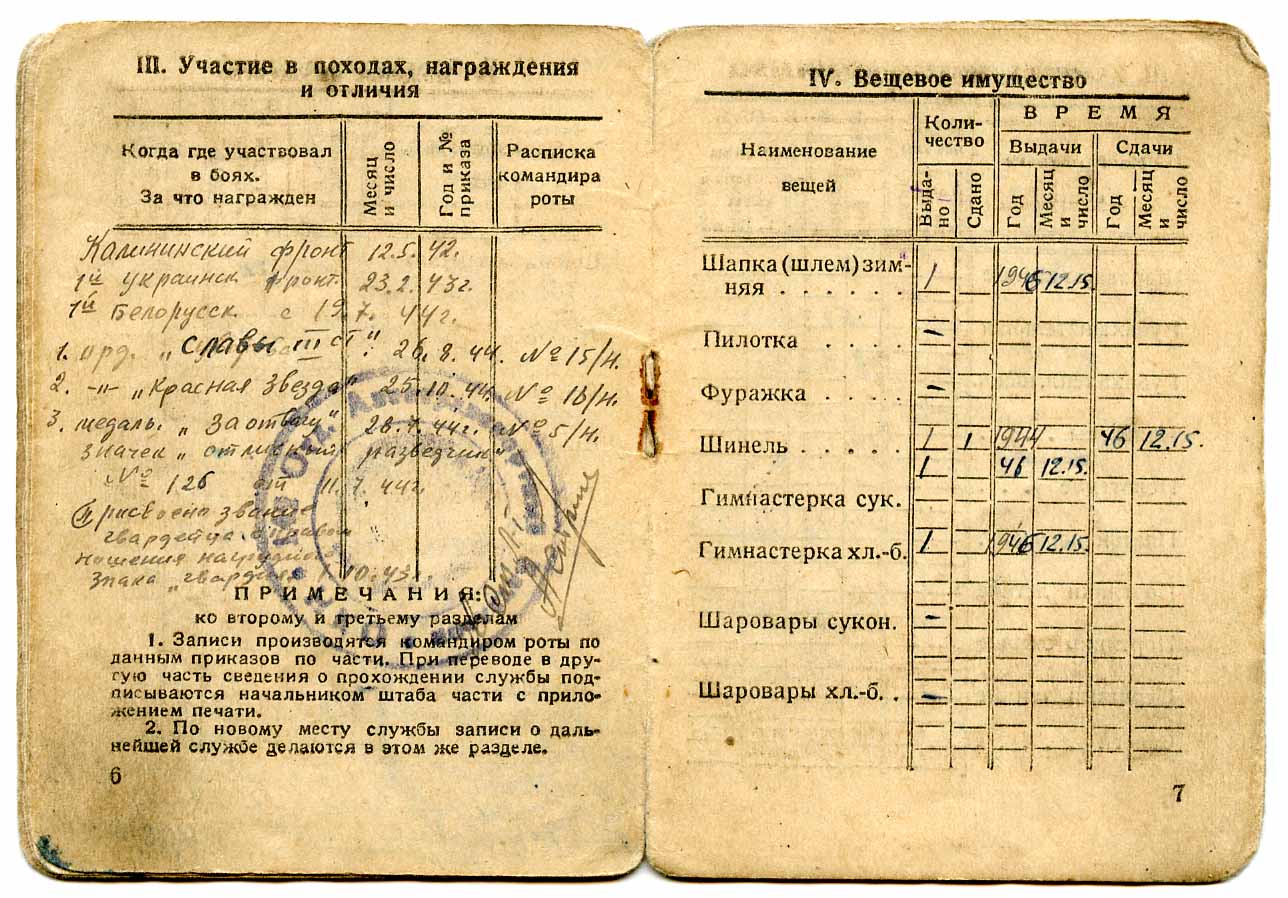 III. Участие в походах, награждения
и отличия
Когда где участвовал
в боях.
За что награжден
Месяц
и число
Год и №
приказа
Расписка
командира
роты
Калининский фронт 12.5. 42.
1й украинск. фронт. 23.2. 43г.
1й Белорусск. с 19.7. 44г.
1. орд. „славы III ст". 26.8.44. № 15/н.
2. -„- „Красная Звезда" 25.10.44. № 16/н.
3. медаль. „За отвагу" 28.7.44г. № 5/н.
значек „отличный разведчик"
№ 126 от 11.7.44г.
Присвоено звание
гвардейца с правом
ношения нагрудного
знака „гвардия" 1.10.43.
ПРИМЕЧАНИЯ:
ко второму и третьему разделам
1. Записи производятся командиром роты по
данным приказов по части. При переводе в дру-
гую часть сведения о прохождении службы под-
писываются начальником штаба части с прило-
жением печати.
2. По новому месту службы записи о даль-
нейшей службе делаются в этом же разделе.
6
IV. Вещевое имущество
Наименование
вещей
Коли-
чество
ВРЕМЯ
Выдачи
Сдачи
Выда-
но
Сдано
Год
Месяц
и
число
Год
Месяц
и
число
Шапка (шлем) зим-
няя . . . . . . 1 1946 12.15.
Пилотка . . . . –
Фуражка . . . . –
Шинель . . . . . 1 1 1944 46 12.15.
1 46 12.15.
Гимнастерка сук.
Гимнастерка хл.-б. 1 1946 12.15.
Шаровары сукон. –
Шаровары хл.-б. . –
7